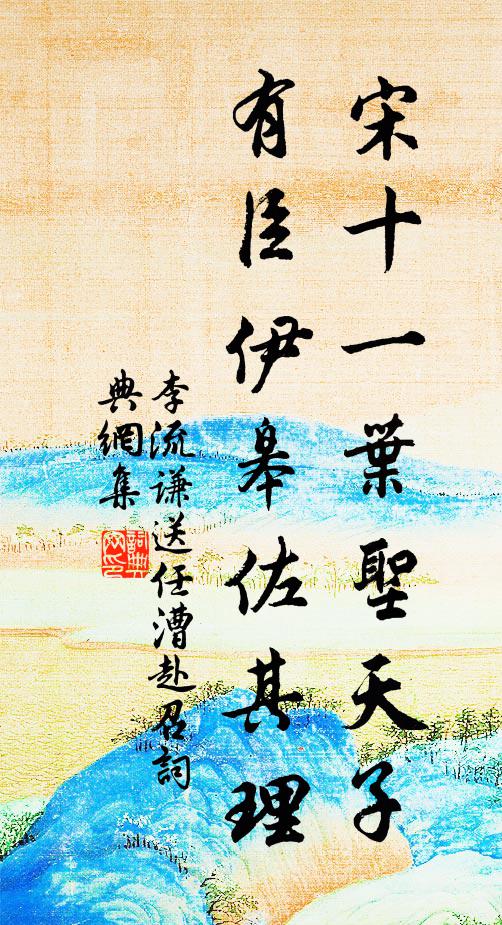 宋十一葉聖天子
有臣伊皋佐其理
李流谦送任漕赴召詞
典網集
詞典
网印